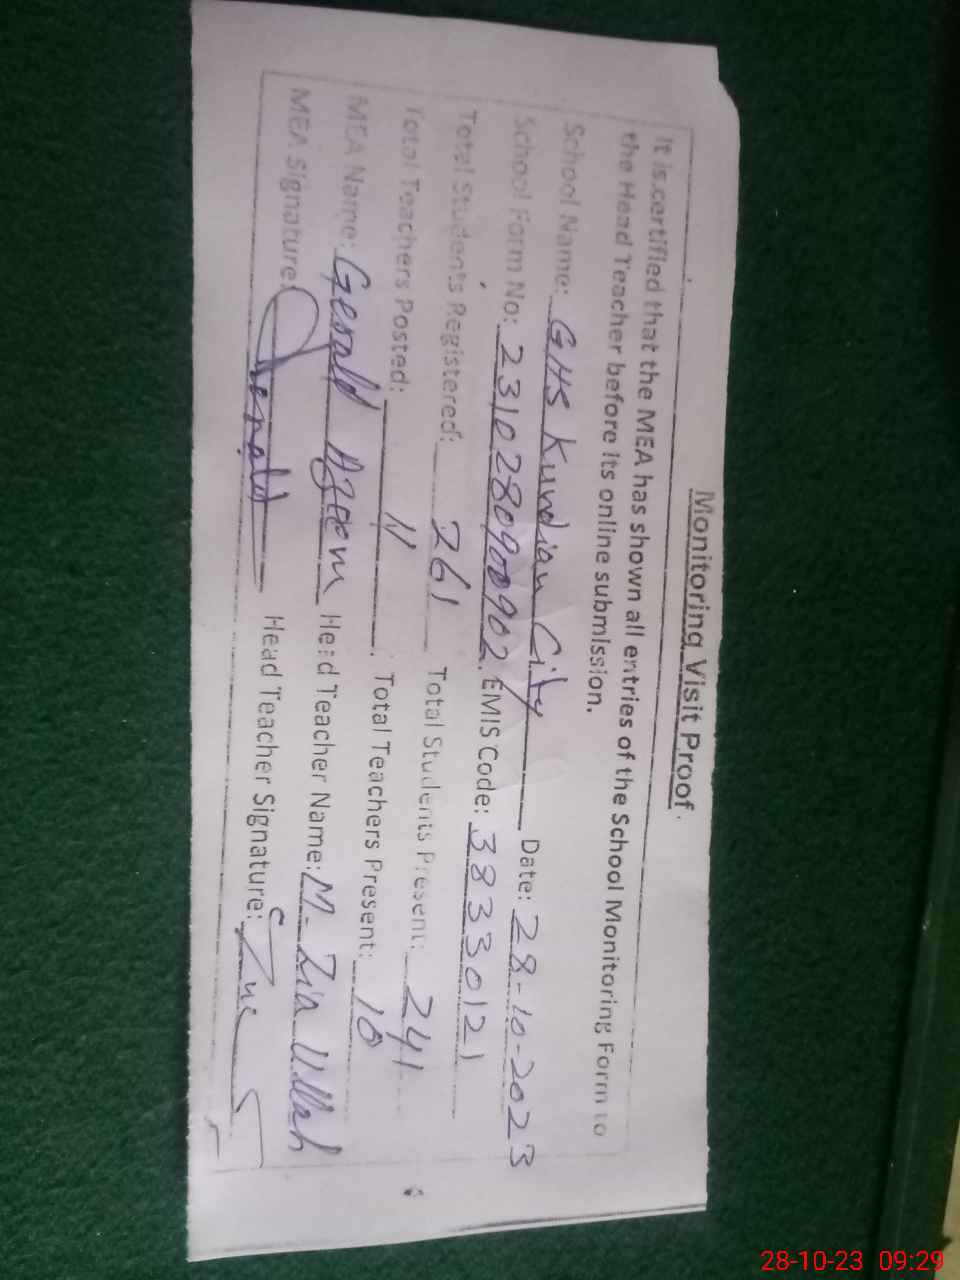 Monitoring Visit Proof.
It is certified that the MEA has shown all entries of the School Monitoring Form to
the Head Teacher before its online submission.
School Name: GHS Kundian City Date: 28-10-2023
School Form No: 2310280900902. EMIS Code: 38330121
Total Students Registered: 261 Total Students Present: 241
Total Teachers Posted: 11. Total Teachers Present: 10
MEA Name: Gerald Azeem Head Teacher Name: M. Zia Ullah
MEA Signature: Head Teacher Signature:
28-10-23 09:29